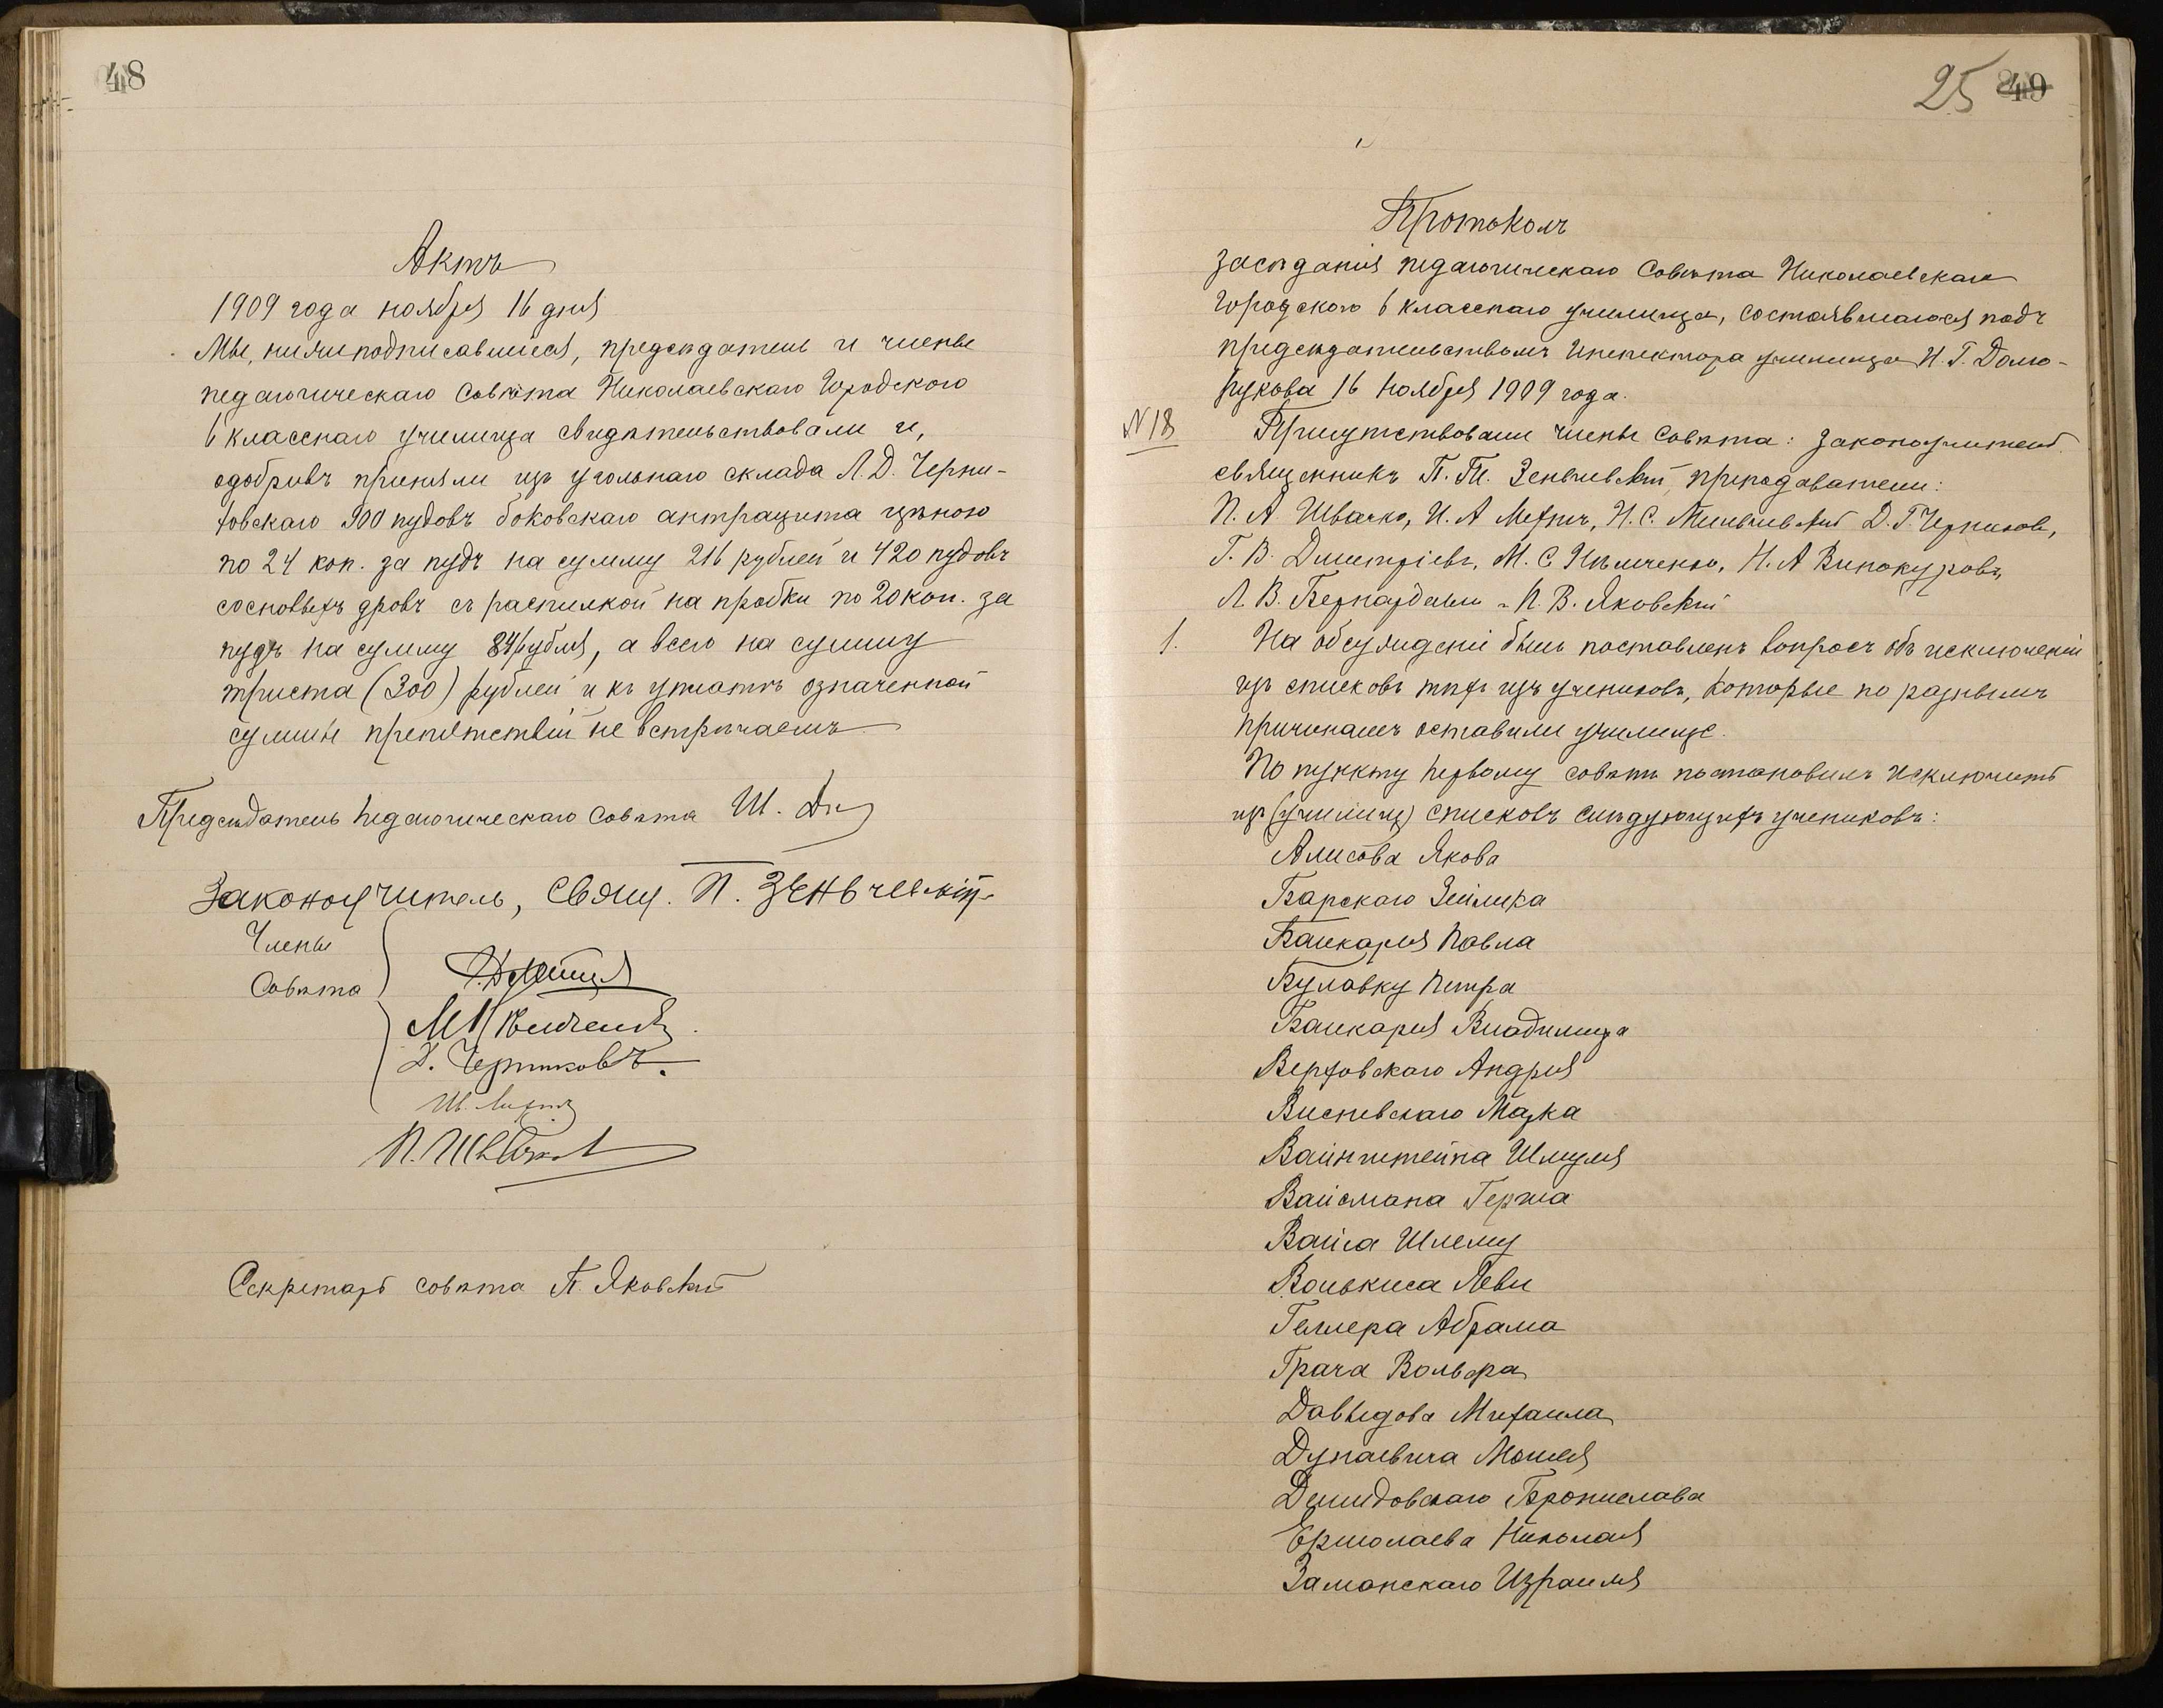 48
Актъ
1909 года ноября 16 дня
Мы, нижеподписавшіеся, предсѣдатель и члены
педагогическаго Совѣта Николаевскаго Городского
6 класснаго училища свидѣтельствовали и,
одобривъ приняли изъ угольнаго склада Л. Д. Черни-
ховскаго 900 пудовъ боковскаго антрацита цѣною
по 24 коп. за пудъ на сумму 216 рублей и 420 пудовъ
сосновыхъ дровъ съ распилкой на пробки по 20 коп. за
пудъ на сумму 84 рубля, а всего на сумму
триста (300) рублей и къ уплатѣ означенной
суммы препятствій не встрѣчаемъ
Предсѣдатель педагогическаго Совѣта
Законоучитель, Свящ. П. Зеньчевскій
Члены
Совѣта
Д. Чертиковъ.
Секретарь совѣта П. Яковскій
25 49
Протоколъ
засѣданія педагогическаго Совѣта Николаевскаго
Городского 6 класснаго училища, состоявшагося подъ
предсѣдательствомъ Инспектора училища И. Г. Долго-
рукова 16 ноября 1909 года.
N 18
Присутствовали члены Совѣта: Законоучитель
священникъ П. П. Зеньчевскій, преподаватели:
П. А. Швачко, И. А. Мехтъ, И. С. Д. Г. Чертиковъ,
Г. В. Дмитріевъ, М. С. Ильченко, Н. А. Винокуровъ,
Л. В. и П. В. Яковскій
1. На обсужденіи былъ поставленъ вопросъ объ исключеніи
изъ списковъ тѣхъ изъ учениковъ, которые по разнымъ
причинамъ оставили училище.
По пункту первому совѣтъ постановилъ исключить
изъ (училищ) списковъ слѣдующихъ учениковъ:
Алисова Якова
Барскаго Зейлика
Башкаря Павла
Булавку Петра
Башкаря Владиміра
Верховскаго Андрея
Висневскаго Марка
Вайнштейна Шмуля
Вайсмана Герша
Вайса Шлему
Волькиса Леви
Геллера Абрама
Грача Вольфа
Давыдова Михаила
Дунаевича Мошея
Демидовскаго Бронислава
Ермолаева Николая
Заманскаго Израиля